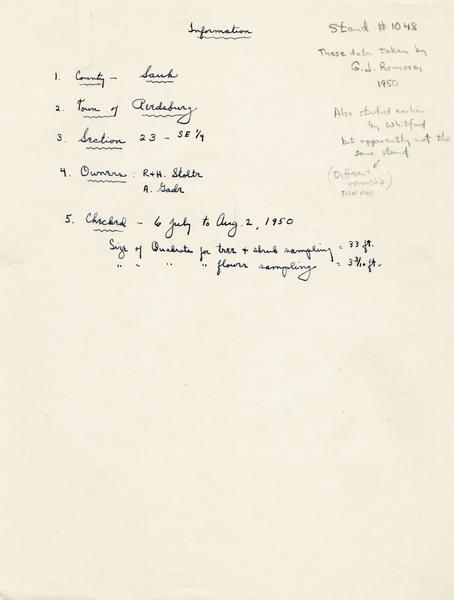 Information
Stand # 1048
These data taken by
G. J.
1950
Also studied earlier
by Whitford
but apparently not the
same stand
(Different
township)
1. County - Sauk
2. Town of Reedsburg
3. Section 23 - SE 1/4
4. Owners: R+H. Stoltz
A.
5. Checked - 6 July to Aug. 2, 1950
Size of Quadrats for tree + shrub sampling = 33 ft.
" " " " flower sampling = 3 3/10 ft.